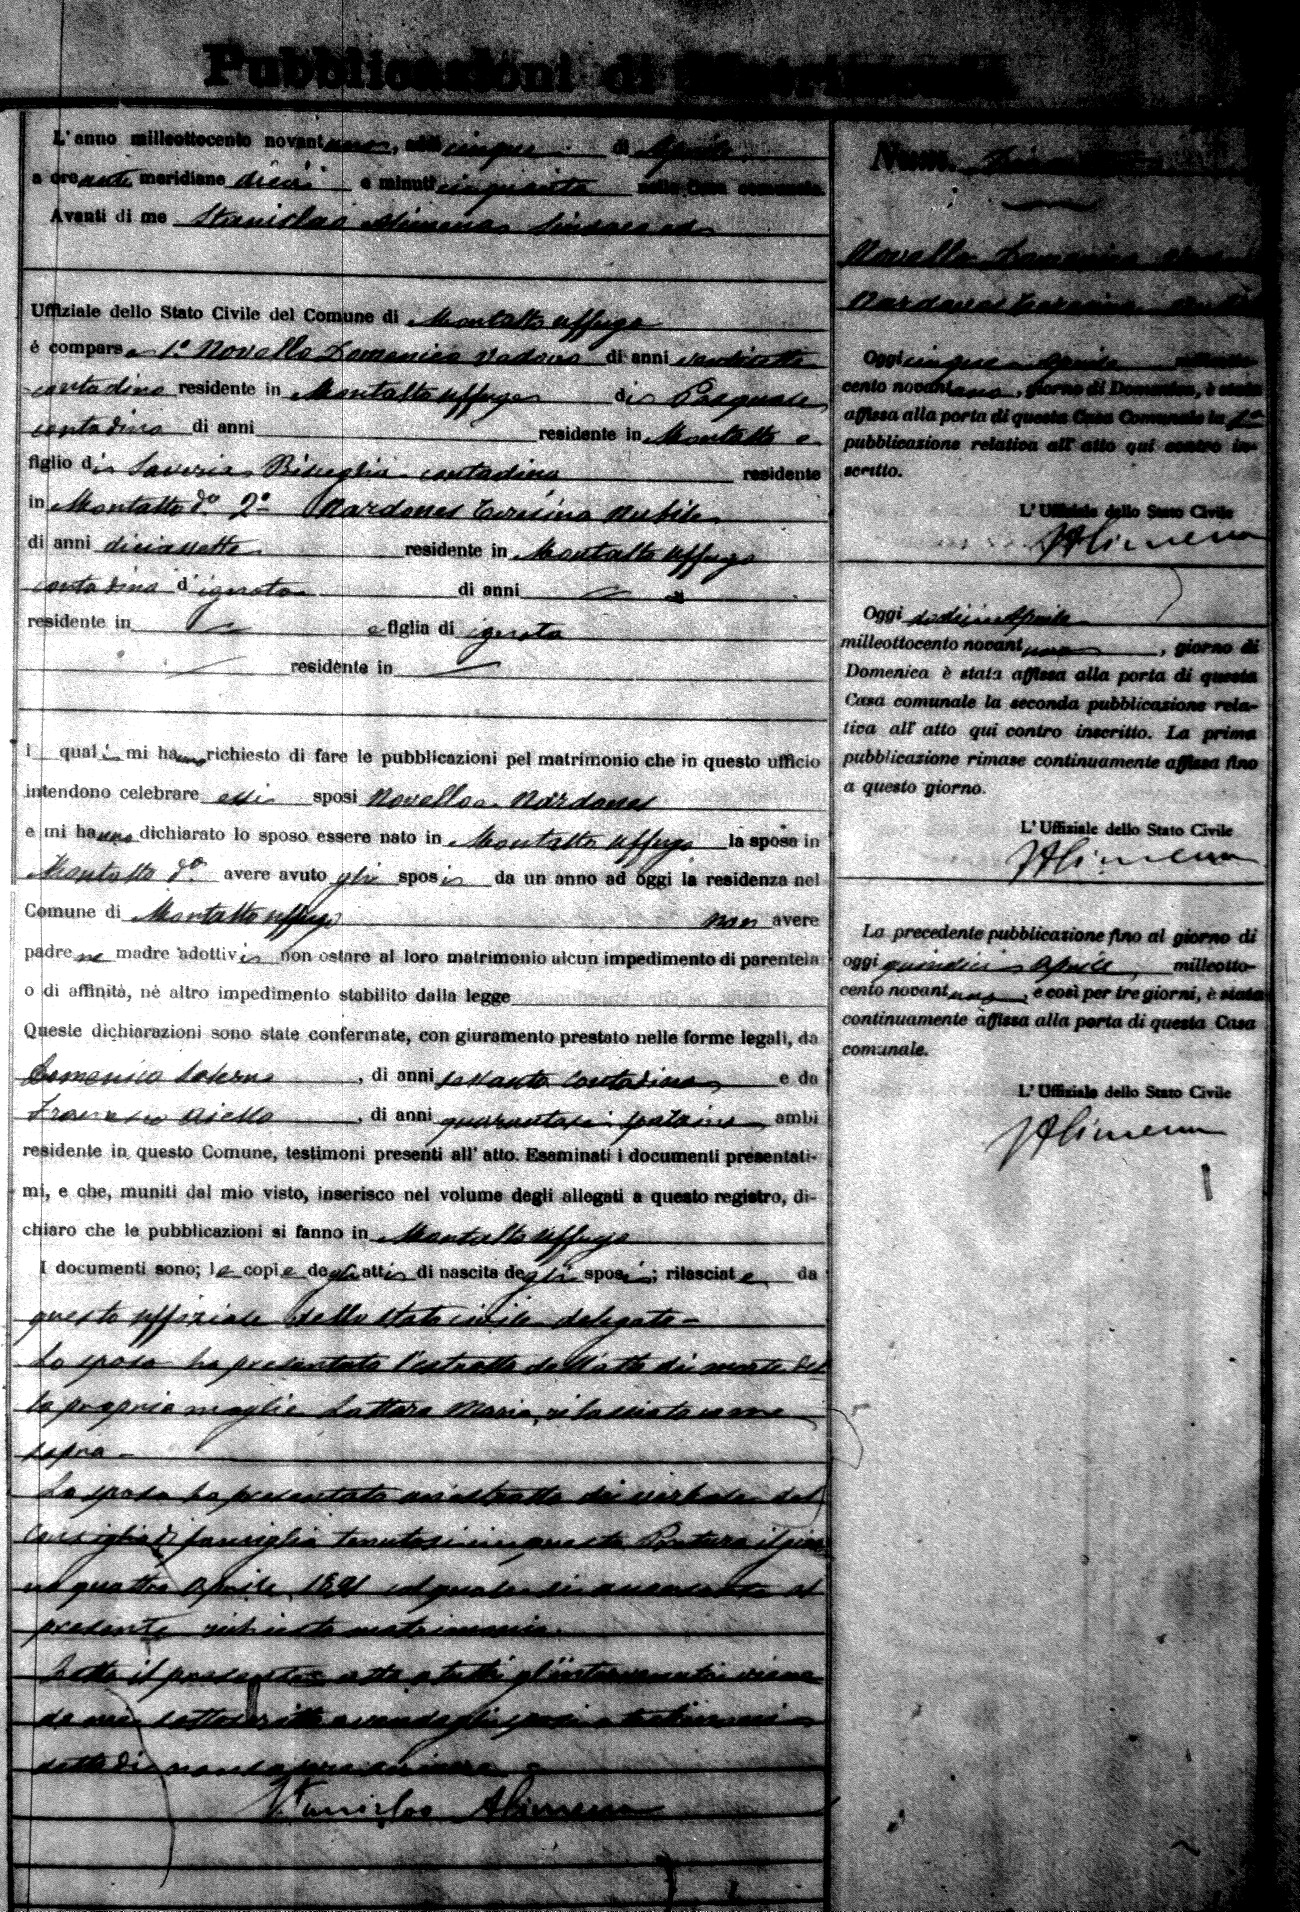 Pubblicazioni di Matrimonii
L'anno milleottocento novantuno, addì cinque di Aprile,
a ore anti meridiane dieci e minuti cinquanta nella Casa comunale
Avanti di me Stanislao Alimena Sindaco ed
Uffiziale dello Stato Civile del Comune di Montalto Uffugo
è comparso 1º Novello Domenico Vedovo di anni ventisette
contadino residente in Montalto Uffugo di Pasquale
contadino di anni residente in Montalto e
figlio di Saveria Bisceglia contadina residente
in Montalto dº 2º Nardones Teresina Nubile
di anni diciasette residente in Montalto Uffugo
contadina d'ignoto di anni
residente in e figlia di ignota
residente in
I quali mi hanno richiesto di fare le pubblicazioni pel matrimonio che in questo ufficio
intendono celebrare essi sposi Novello e Nardones
e mi hanno dichiarato lo sposo essere nato in Montalto Uffugo la sposa in
Montalto dº avere avuto gli sposi da un anno ad oggi la residenza nel
Comune di Montalto Uffugo non avere
padre ne madre adottivi non ostare al loro matrimonio alcun impedimento di parentela
o di affinità, nè altro impedimento stabilito dalla legge
Queste dichiarazioni sono state confermate, con giuramento prestato nelle forme legali, da
Domenico Salerno, di anni sessanta contadino e da
Francesco Aiello, di anni quarantasei ambi
residente in questo Comune, testimoni presenti all'atto. Esaminati i documenti presentati-
mi, e che, muniti dal mio visto, inserisco nel volume degli allegati a questo registro, di-
chiaro che le pubblicazioni si fanno in Montalto Uffugo
I documenti sono; le copie degli atti di nascita degli sposi; rilasciate da
questo uffiziale dello stato civile delegato -
Lo sposo ha presentato l'estratto dell'atto di morte del
la propria moglie Lattara Maria, rilasciato come
sopra -
La sposa ha presentato un estratto di verbale del
Consiglio di famiglia tenutosi in questa Pretura il gior
no quattro Aprile 1891 col quale si acconsente al
presente richiesto matrimonio.
Letto il presente atto a tutti gl'intervenuti viene
da me sottoscritto avendo gli sposi e testimoni
detto di non sapere scrivere -
Stanislao Alimena
Num.
Novello Domenico Vedovo
Nardones Teresina Nubile
Oggi cinque Aprile milleotto-
cento novantuno, giorno di Domenica, è stata
affissa alla porta di questa Casa Comunale la 1ª
pubblicazione relativa all'atto qui contro in-
scritto.
L'Uffiziale dello Stato Civile
SAlimena
Oggi dodici Aprile
milleottocento novantuno, giorno di
Domenica è stata affissa alla porta di questa
Casa comunale la seconda pubblicazione rela-
tiva all'atto qui contro inscritto. La prima
pubblicazione rimase continuamente affissa fino
a questo giorno.
L'Uffiziale dello Stato Civile
SAlimena
La precedente pubblicazione fino al giorno di
oggi quindici Aprile milleotto-
cento novantuno, e così per tre giorni, è stata
continuamente affissa alla porta di questa Casa
comunale.
L'Uffiziale dello Stato Civile
SAlimena